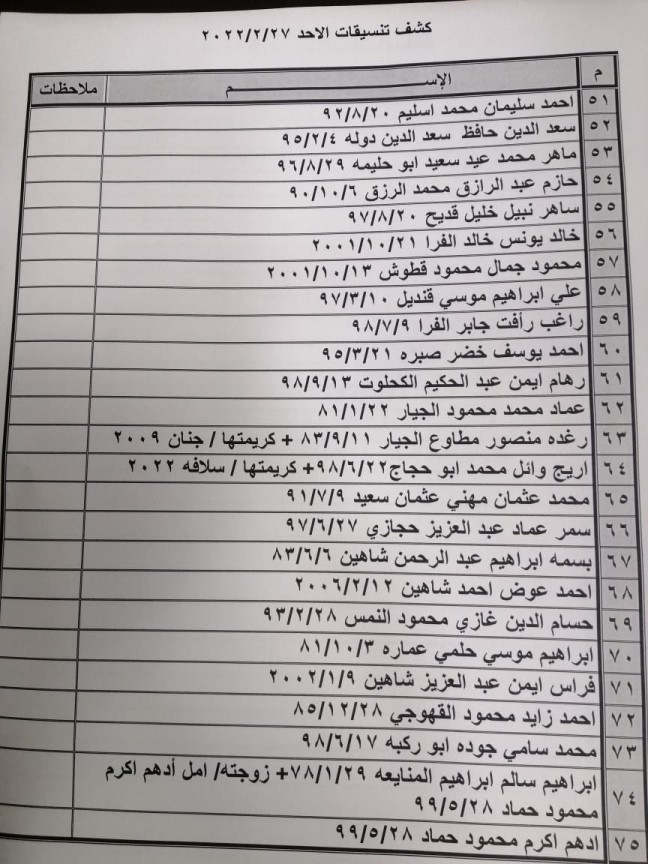 كشف تنسيقات الاحد ٢٠٢٢/٢/٢٧
م الإســـــم ملاحظات
٥١ احمد سليمان محمد اسليم ٩٢/٨/٢٠
٥٢ سعد الدين حافظ سعد الدين دوله ٩٥/٢/٤
٥٣ ماهر محمد عيد سعيد ابو حليمه ٩٦/٨/٢٩
٥٤ حازم عبد الرازق محمد الرزق ٩٠/١٠/٦
٥٥ ساهر نبيل خليل قديح ٩٧/٨/٢٠
٥٦ خالد يونس خالد الفرا ٢٠٠١/١٠/٢١
٥٧ محمود جمال محمود قطوش ٢٠٠١/١٠/١٣
٥٨ علي ابراهيم موسي قنديل ٩٧/٣/١٠
٥٩ راغب رأفت جابر الفرا ٩٨/٧/٩
٦٠ احمد يوسف خضر صبره ٩٥/٣/٢١
٦١ رهام ايمن عبد الحكيم الكحلوت ٩٨/٩/١٣
٦٢ عماد محمد محمود الجيار ٨١/١/٢٢
٦٣ رغده منصور مطاوع الجيار ٨٣/٩/١١ + كريمتها / جنان ٢٠٠٩
٦٤ اريج وائل محمد ابو حجاج ٩٨/٦/٢٢+ كريمتها / سلافه ٢٠٢٢
٦٥ محمد عثمان مهني عثمان سعيد ٩١/٧/٩
٦٦ سمر عماد عبد العزيز حجازي ٩٧/٦/٢٧
٦٧ بسمه ابراهيم عبد الرحمن شاهين ٨٣/٦/٦
٦٨ احمد عوض احمد شاهين ٢٠٠٦/٢/١٢
٦٩ حسام الدين غازي محمود النمس ٩٣/٢/٢٨
٧٠ ابراهيم موسي حلمي عماره ٨١/١٠/٣
٧١ فراس ايمن عبد العزيز شاهين ٢٠٠٢/١/٩
٧٢ احمد زايد محمود القهوجي ٨٥/١٢/٢٨
٧٣ محمد سامي جوده ابو ركبه ٩٨/٦/١٧
٧٤ ابراهيم سالم ابراهيم المنايعه ٧٨/١/٢٩+ زوجته/ امل أدهم اكرم
محمود حماد ٩٩/٥/٢٨
٧٥ ادهم اكرم محمود حماد ٩٩/٥/٢٨